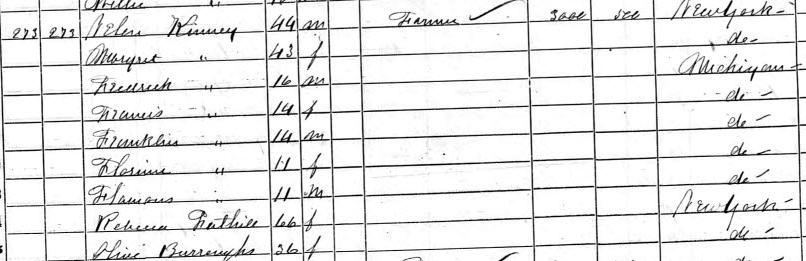 Willie "
273 273 Nelson Kinney 44 m Farmer 3000 500 New York
Margret " 43 f do
Fredrick " 16 m Michigan
Francis " 14 f do
Franklin " 14 m do
Florine " 11 f do
Flamous " 11 m do
Rebecca 66 f New York
Olive Burroughs 36 f do